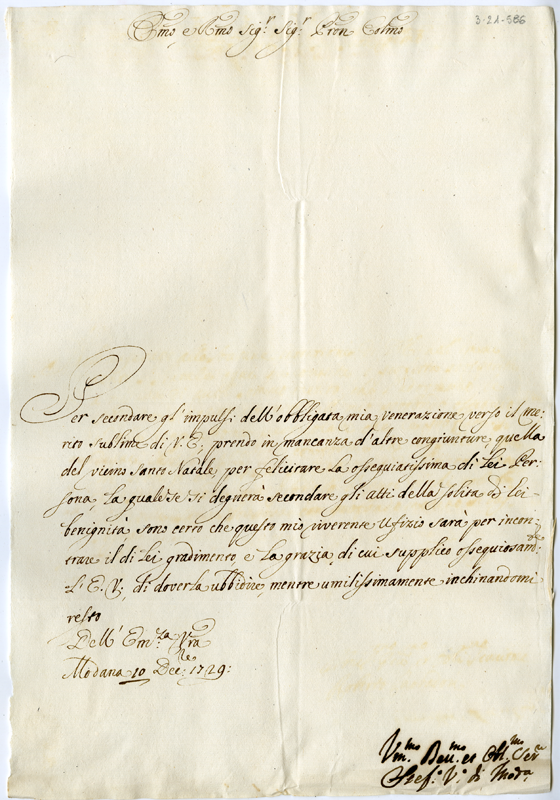 3-21-986
Em̃o e Rmo Sig.r Sig.r Pron Colmo
Per secondare gl'impulsi dell'obbligata mia venerazione verso il me-
rito sublime di V. E. prendo in mancanza d'altre congiunture quella
del vicino Santo Natale per felicitare la ossequiatissima di Lei Per-
sona, la quale se si degnerà secondare gli atti della solita di lei
benignità sono certo che questo mio riverente Ufizio sarà per incon-
trare il di Lei gradimento e la grazia, di cui supplico ossequiosam.te
L'E. V. di doverla ubbidire, mentre umilissimamente inchinandomi
resto
Dell' Em.za Vra
Modana 10 Dec.re 1729:
Um.mo Deu.mo et Obl.mo Ser.re
Stef.o V.o di Mod.a